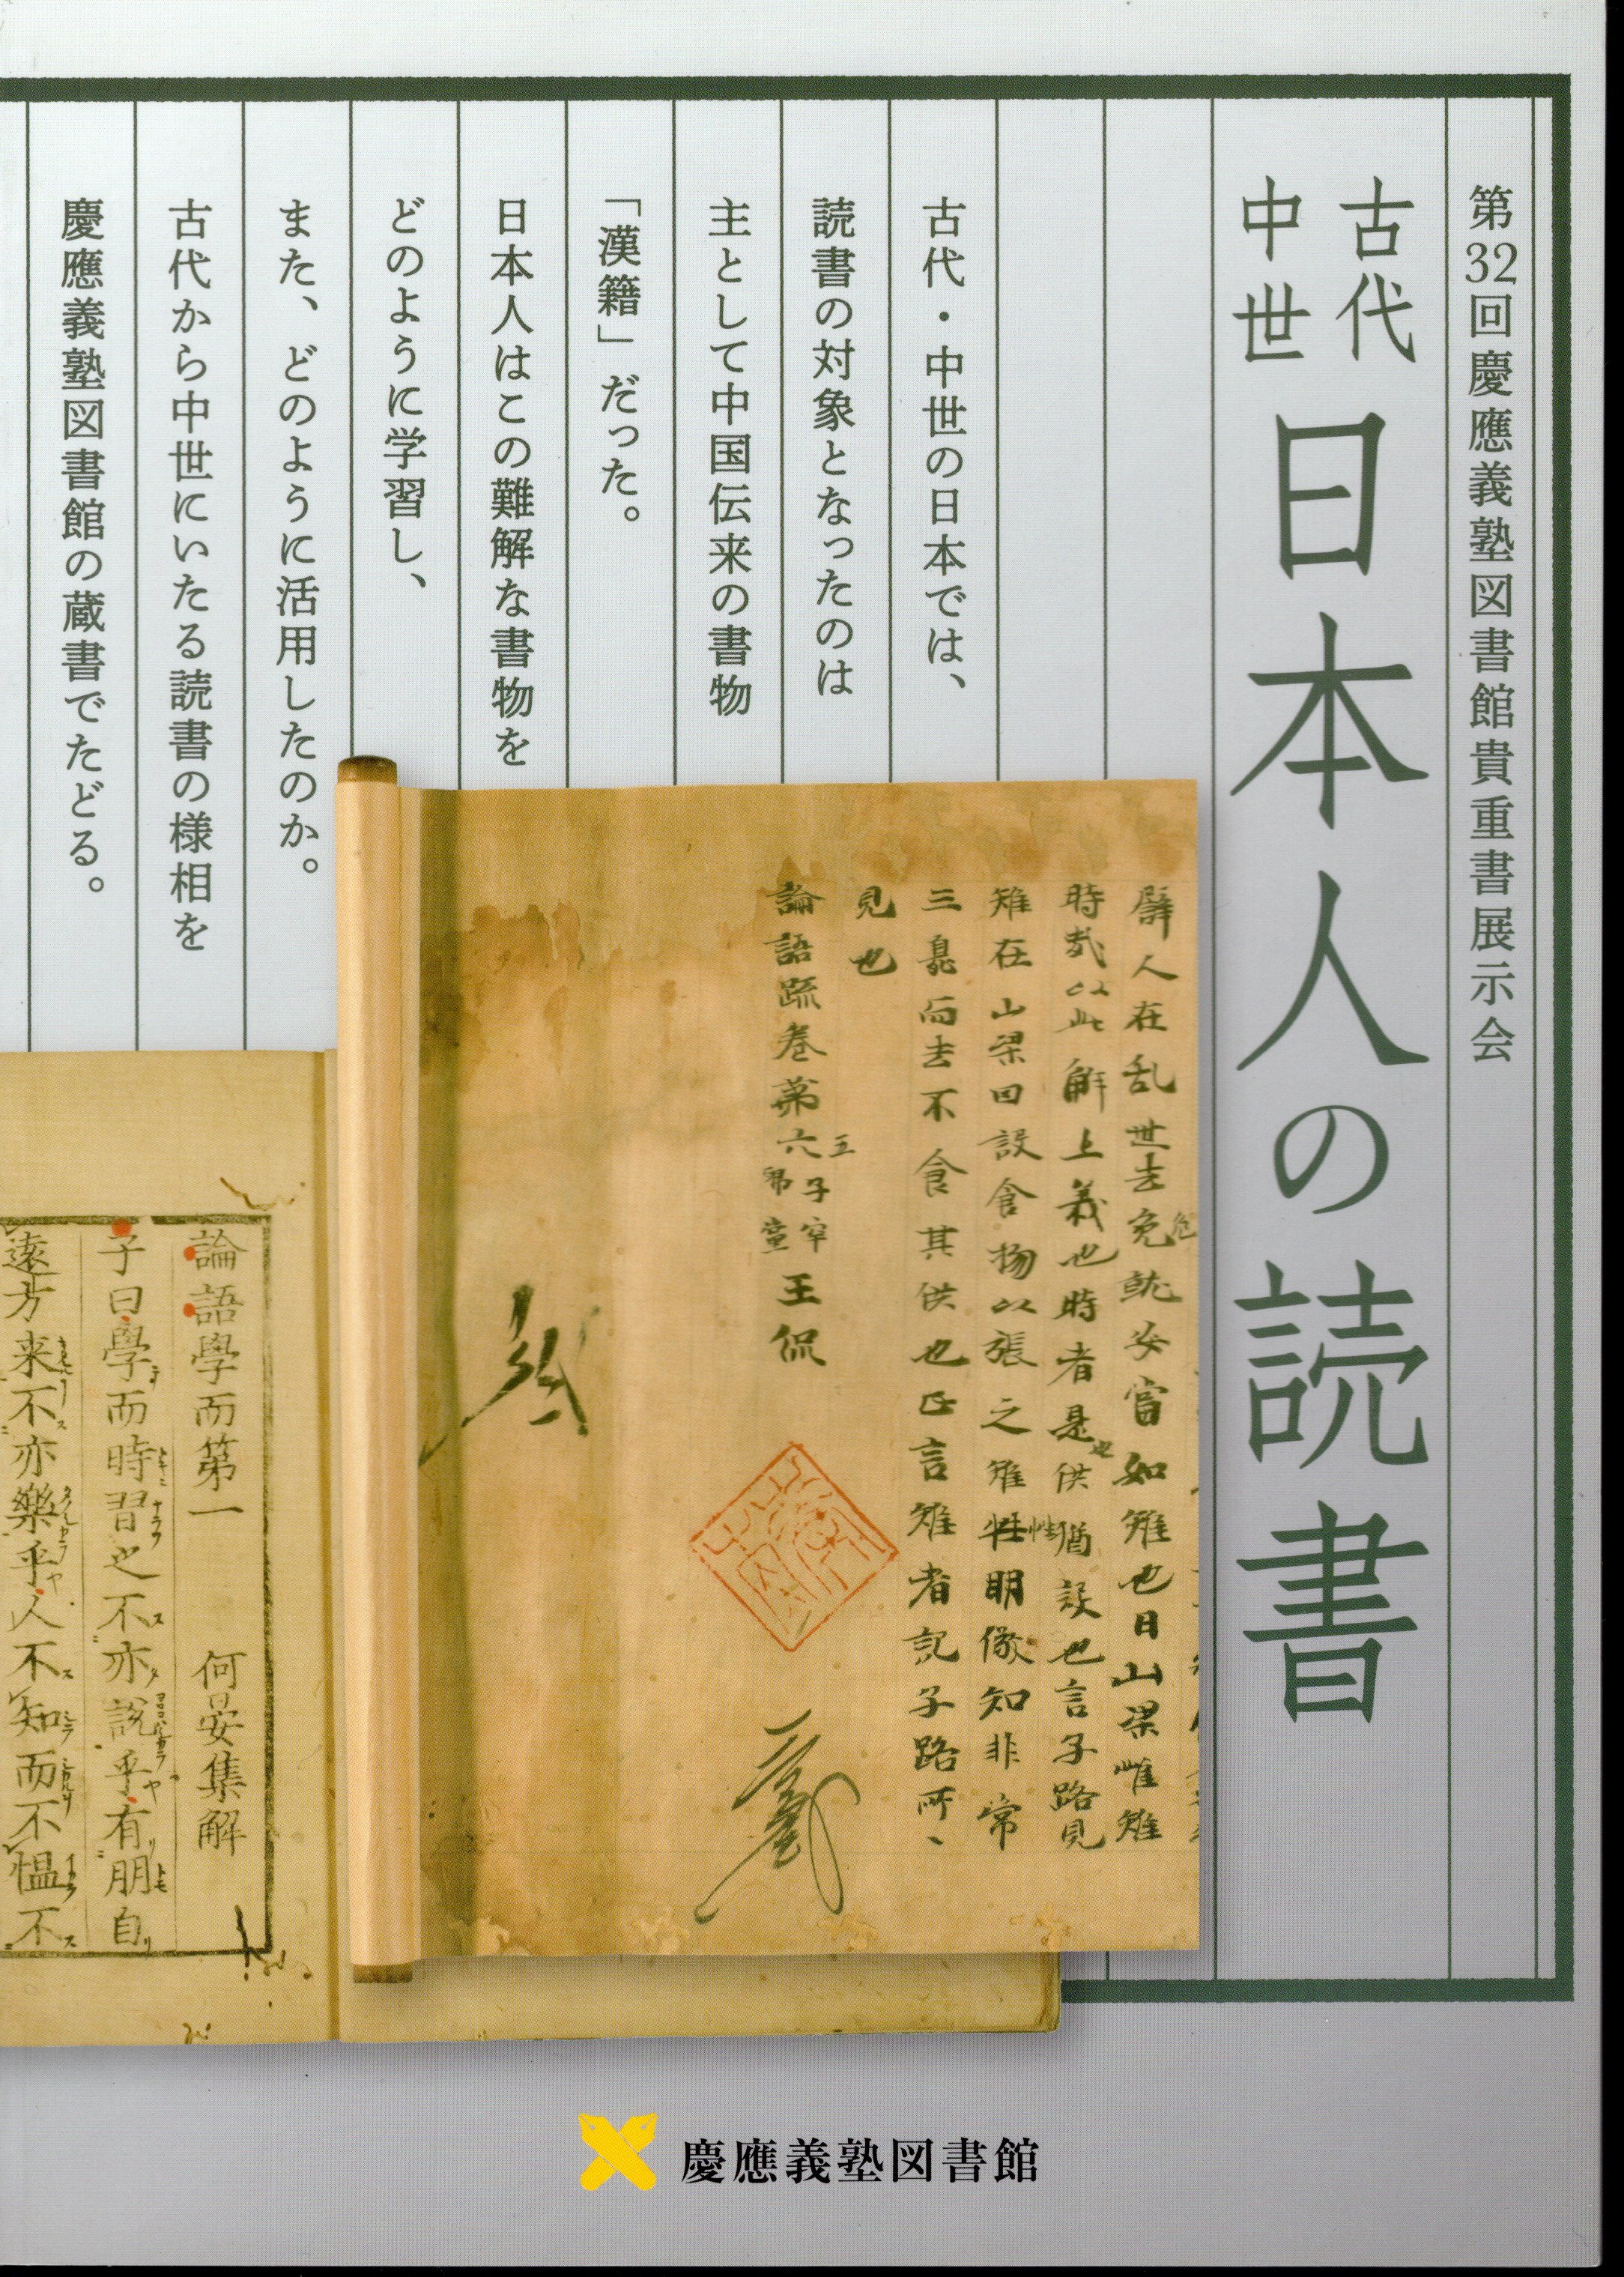 第32回慶應義塾図書館貴重書展示会
古代
中世
日本人の読書
古代・中世の日本では、
読書の対象となったのは
主として中国伝来の書物
「漢籍」だった。
日本人はこの難解な書物を
どのように学習し、
また、どのように活用したのか。
古代から中世にいたる読書の様相を
慶應義塾図書館の蔵書でたどる。
辟人在乱世去危就安當如雉也曰山梁雌雉
時哉以此解上義也時者是也供猶設也言子路見
雉在山梁因設食物以張之雉性明儌知非常
三臭而去不食其供也正言雉者記子路所
見也
論語疏巻第六
五 子罕
郷黨
王侃
論語學而第一 何晏集解
子曰學而時習之不亦說乎有朋自
遠方来不亦樂乎人不知而不慍不
慶應義塾図書館